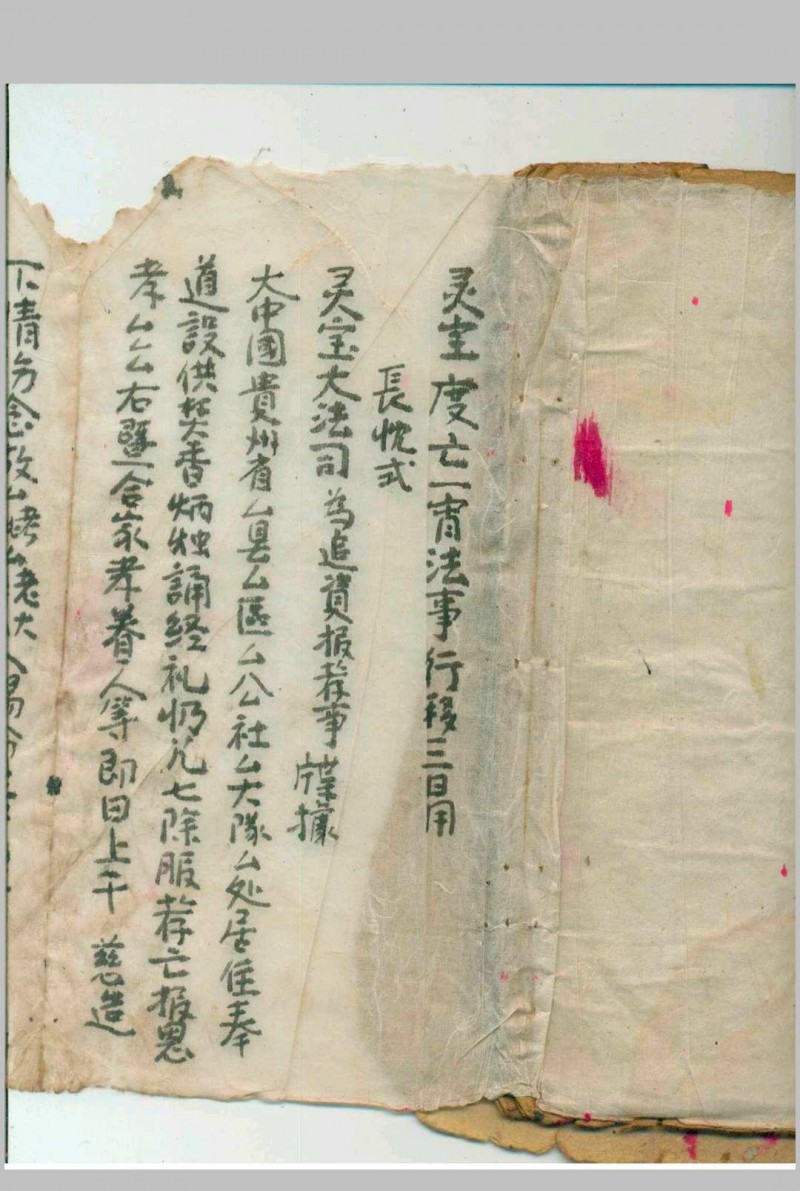 灵宝度亡一宵法事行移三日用
長忱式
灵宝大法司為追資报荐事 牒據
大中國貴州省厶县厶區厶公社厶大隊厶处居住奉
道設供焚香炳烛誦经礼忏兑七除服荐亡报恩
孝厶厶右暨合家孝眷人等即日上干 慈造
下情乃念故厶姥厶老大